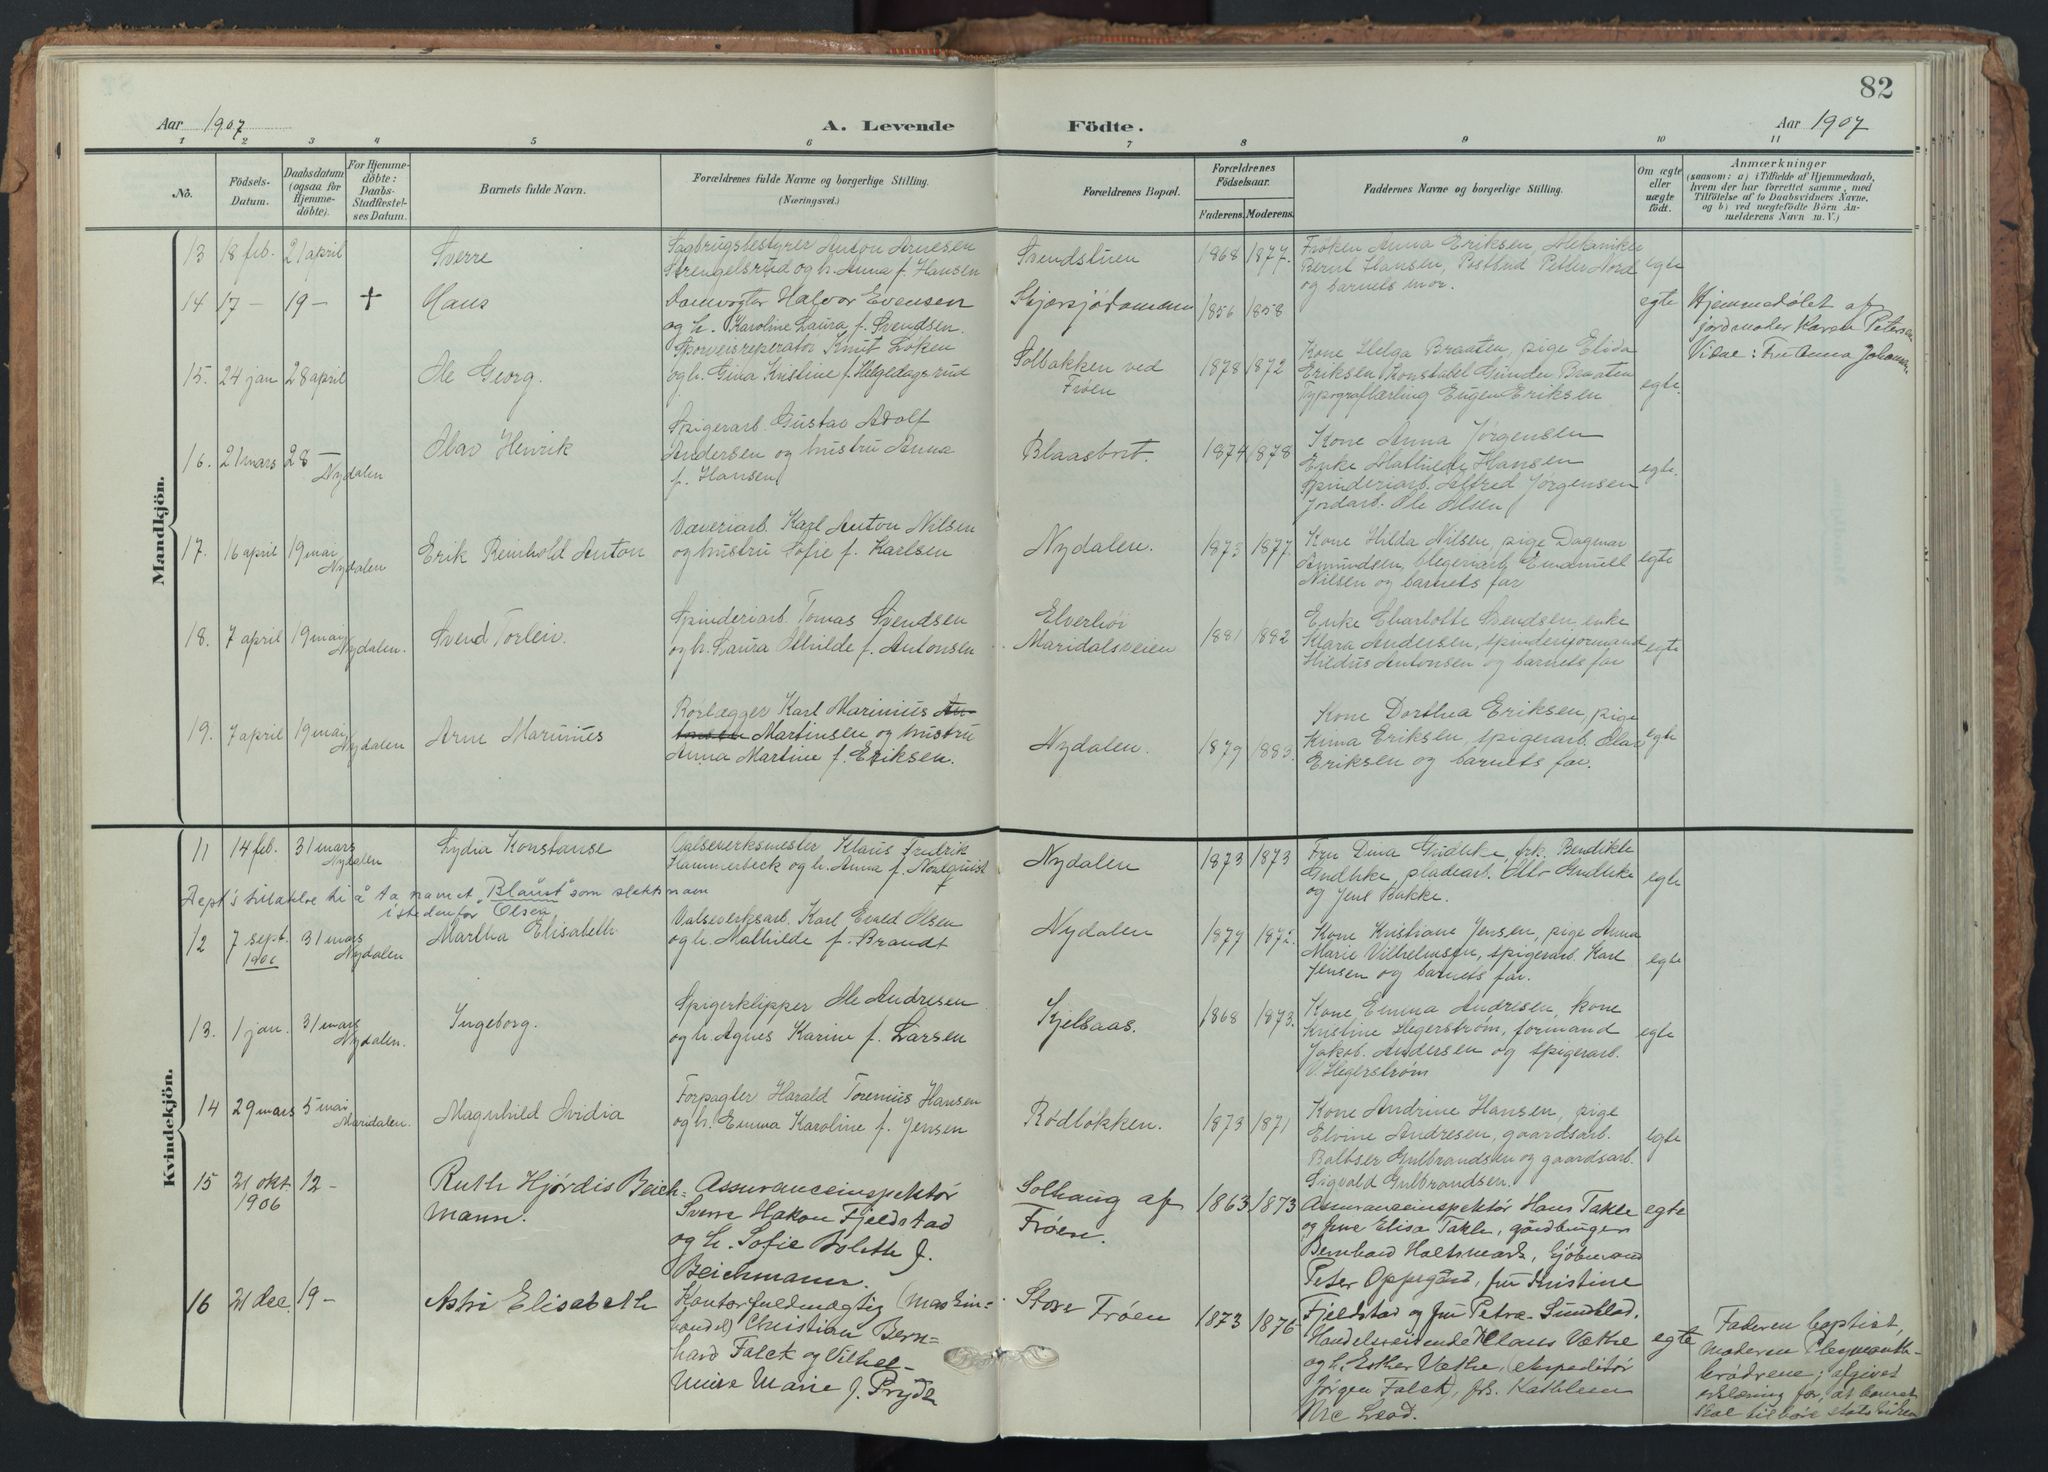 82
Aar 1907
A. Levende Födte.
Aar 1907
1 2 3 4 5 6 7 8 9 10 11
No.
Födsels-
Datum.
Daabsdatum
(ogsaa for
Hjemme-
döbte).
For Hjemme-
döbte:
Daabs-
Stadfæstel-
ses Datum.
Barnets fulde Navn.
Forældrenes fulde Navne og borgerlige Stilling.
(Næringsvei.)
Forældrenes Bopæl.
Forældrenes
Födselsaar.
Faderens. Moderens.
Faddernes Navne og borgerlige Stilling.
Om ægte
eller
uægte
födt.
Anmærkninger
(saasom: a) i Tilfælde af Hjemmedaab,
hvem der har forrettet samme, med
Tilföielse af to Daabsvidners Navne,
og b) ved uægtefödte Börn An-
melderens Navn m. V.)
Mandkjön.
13 18 feb. 21 april
Sverre
Sagbrugsbestyrer Anton Arnesen
Strengelsrud og h. Anna f. Hansen
Svendstuen
1868 1877.
Frøken Anna Eriksen, Mekaniker
Bernt Hansen, Postbud Petter Nord
og barnets mor.
egte
14 17 - 19 - +
Hans
Damvogter Halvor Evensen
og h. Karoline Laura f. Svendsen.
Skjærsjødammen
1856 1858
egte
Hjemmedøbt af
jordmoder Karen Petersen
Vidne: Fru Anna Johansen.
15. 24 jan 28 april
Ole Georg.
Sporveisreperatør Knut Løken
og h. Gina Kristine f. Helgedagsrud
Solbakken ved
Frøen
1878 1872
Kone Helga Braaten, pige Elida
Eriksen, Konstabel Gunder Braaten
Typograflærling Eugen Eriksen
egte.
16. 21 mars 28 -
Nydalen
Olav Henrik
Spigerarb. Gustav Adolf
Andersen og hustru Anna
f. Hansen
Blaasbort.
1874 1878
Kone Anna Jørgensen
Enke Mathilde Hansen
Spinderiarb. Alfred Jørgensen
Jordarb. Ole Olsen
egte.
17. 16 april 19 mai
Nydalen
Erik Reinhold Anton
Væveriarb. Karl Anton Nilsen
og hustru Sofie f. Karlsen
Nydalen.
1873 1877.
Kone Hilda Nilsen, pige Dagmar
Amundsen, blegeriarb. Emanuell
Nilsen og barnets far
egte
18. 7 april 19 mai
Nydalen.
Svend Torleiv.
Spinderiarb. Tomas Svendsen
og h. Laura Athilde f. Antonsen
Elverhøi
Maridalsveien
1881 1882
Enke Charlotte Svendsen, enke
Klara Andersen, spinderiformand
Hildus Antonsen og barnets far
egte
19. 7 april 19 mai
Nydalen
Arne Marinius
Rørlægger Karl Marinius An-
tonsen Martinsen og hustru
Anna Martine f. Eriksen.
Nydalen.
1879 1883.
Kone Dorthea Eriksen, pige
Kima Eriksen, spigerarb. Olav
Eriksen og barnets far.
egte
Kvindekjön.
11 14 feb. 31 mars
Nydalen
Lydia Konstanse
Valseverksmester Klaus Fredrik
Hammerbeck og h. Anna f. Nordquist
Nydalen
1873 1873
Fru Dina Gudtke, frk. Bendikte
Gudtke, pladearb. Otto Gudtke
og Jens Bakke.
egte
Dept's tillatelse til å ta navnet „Blaust" som slektsnavn
istedenfor Olsen
12 7 sept. 31 mars
1906 Nydalen
Martha Elisabeth
Valseverksarb. Karl Evald Olsen
og h. Mathilde f. Brandt
Nydalen
1877 1872.
Kone Kristiane Jensen, pige Anna
Marie Vilhelmsen, spigerarb. Karl
Jensen og barnets far.
egte
13. 1 jan. 31 mars
Nydalen.
Ingeborg.
Spigerklipper Ole Andresen
og h. Agnes Karine f. Larsen
Kjelsaas.
1868 1873.
Kone Emma Andresen, kone
Kristine Hegerstrøm, formand
Jakob Andersen og spigerarb.
V. Hegerstrøm
egte
14 29 mars 5 mai
Maridalen.
Magnhild Ovidia
Forpagter Harald Torenius Hansen
og h. Emma Karoline f. Jensen
Rødløkken.
1873 1871
Kone Andrine Hansen, pige
Elvine Andresen, gaardsarb.
Baltser Gulbrandsen og gaardsarb.
Sigvald Gulbrandsen.
egte
15 21 okt. 12 -
1906
Ruth Hjørdis Beich-
mann.
Assuranceinspektør
Sverre Hakon Fjeldstad
og h. Sofie Bolette f.
Beichmann.
Solhaug af
Frøen.
1863 1873
Assuranceinspektør Hans Takle
og frue Elisa Takle, gårdbruger
Bernhard Holtsmark, Gjøbmand
Peter Oppegård, fru Kristine
Fjeldstad og fru Petra Sundblad.
egte
16 21 dec. 19 -
Astri Elisabeth
Kontorfuldmægtig (maskin-
handel) Christian Bern-
hard Falck og Vilhel-
mine Marie f. Prydz
Store Frøen
1873 1876
Handelsreisende Claus Vethe
og h. Esther Vethe, expeditør
Jørgen Falck, frk. Kathleen
Mc Leod.
egte
Faderen baptist,
moderen Plymouth-
brødrene; afgivet
erklæring for, at barnet
skal tilhøre statskirken